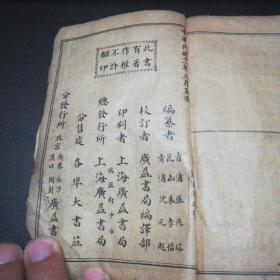 此書
有著
作權
不許
翻印
編纂者
青浦張
崑山李
青浦沈元起
校訂者
廣益書局編譯部
印刷者
上海廣益書局
總發行所
上海廣益書局
分售處
各埠大書莊
分發行所
北京 廣東 長沙
漢口 開封
廣益書